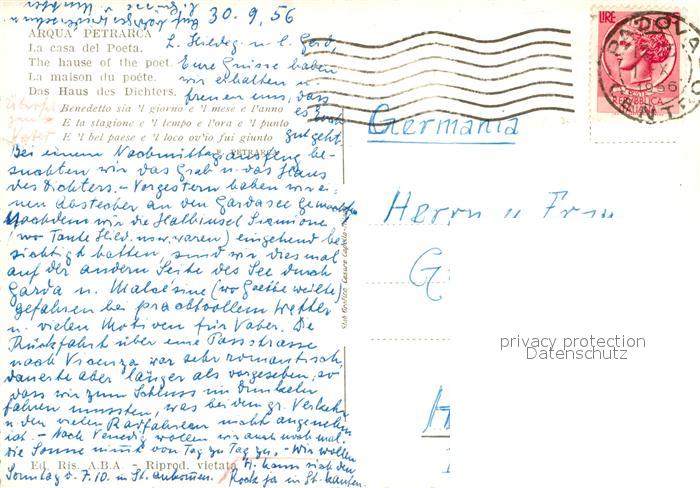 30.9.56
ARQUA PETRARCA
La casa del Poeta.
The hause of the poet.
La maison du poéte.
Das Haus des Dichters.
Benedetto sia 'l giorno e 'l mese e l'anno
E la stagione e 'l tempo e l'ora e 'l punto
E 'l bel paese e 'l loco ov'io fui giunto
F. PETRARCA
L. Hildeg. u. l. Gerd,
Eure Grüsse haben
wir erhalten u.
freuen uns, dass
es Euch
gut geht.
Bei einem Nachmittagsausflug be-
suchten wir das Grab u. das Haus
des Dichters. - Vorgestern haben wir ei-
nen Abstecher an den Gardasee gemacht.
Nachdem wir die Halbinsel Sirmione
(wo Tante Hild. usw. waren) eingehend be-
sichtigt hatten, sind wir diesmal
auf der andern Seite des See durch
Garda u. Malcésine (wo Goethe weilte)
gefahren bei prachtvollem Wetter
u. vielen Motiven für Vater. Die
Rückfahrt über eine Passstrasse
nach Vicenza war sehr romantisch,
dauerte aber länger als vorgesehen, so
dass wir zum Schluss im Dunkeln
fahren mussten, was bei dem gr. Verkehr
u. den vielen Radfahrern nicht angenehm
ist. - Nach Venedig wollen wir auch noch mal.
Die Sonne nimmt von Tag zu Tag zu. - Wir wollen
Sonntag d. 7.10. in St. ankommen.
Ed. Ris. A.B.A. - Riprod. vietata
Germania
Herrn u Frau
G
LIRE 25
REPUBBLICA
PADOVA
CENTRO
1956
privacy protection
Datenschutz